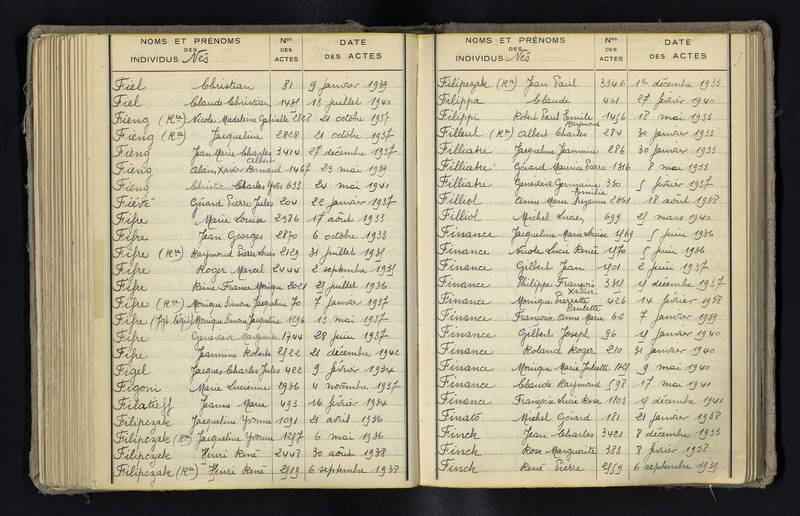 NOMS ET PRÉNOMS DES INDIVIDUS Nés Nos DES ACTES DATE DES ACTES
Fiel Christian 81 9 janvier 1939
Fiel Claude Christian 13 juillet 1940
Fieng (Rce) Nicole Madeleine Gabrielle 2828 21 octobre 1937
Fieng (Rce) Jacqueline 2828 21 octobre 1937
Fieng Jean Marie Charles 3414 27 décembre 1937
Fieng Alain Xavier Albert Bernard 1467 23 mai 1939
Fieng Christian Charles Yves 633 24 mai 1941
Fiévé Gérard Pierre Jules 204 22 janvier 1937
Fifre Marie Louise 2986 17 août 1933
Fifre Jean Georges 2870 6 octobre 1933
Fifre (Rce) Raymond Pierre Louis 2129 31 juillet 1935
Fifre Roger Marcel 2444 2 septembre 1935
Fifre Reine France Monique 2021 21 juillet 1936
Fifre (Rce) Monique Simone Jacqueline 70 7 janvier 1937
Fifre Monique Simone Jacqueline 1296 13 mai 1937
Fifre Geneviève Marguerite 1744 28 juin 1937
Fifre Jeannine Roberte 2522 21 décembre 1942
Figel Jacques Charles Jules 422 9 février 1934
Figoni Marie Lucienne 2936 4 novembre 1937
Filatieff Jeanne Marie 493 16 février 1934
Filipczak Jacqueline Yvonne 1091 21 avril 1936
Filipczak (Rce) Jacqueline Yvonne 1287 6 mai 1936
Filipczak Henri René 2448 30 août 1938
Filipczak (Rce) Henri René 2519 6 septembre 1938
NOMS ET PRÉNOMS DES INDIVIDUS Nés Nos DES ACTES DATE DES ACTES
Filipczak (Rce) Jean Paul 3346 1er décembre 1933
Filippa Claude 461 27 février 1940
Filippi Robert Paul Emile 1456 18 mai 1933
Filleul (Rce) Albert Charles Raymond 284 30 janvier 1933
Filliatre Jacqueline Jeannine 286 30 janvier 1933
Filliatre Gérard Maurice Pierre 1316 8 mai 1933
Filliatre Geneviève Germaine 330 5 février 1937
Filliol Anne Marie Emilie Suzanne 2361 18 août 1938
Filliol Michel Lucien 699 25 mars 1940
Finance Jacqueline Marie Louise 1569 5 juin 1936
Finance Nicole Lucie Renée 1570 5 juin 1936
Finance Gilbert Jean 1501 2 juin 1937
Finance Philippe François 4 décembre 1937
Finance Monique Pierrette Xavier 426 14 février 1938
Finance Françoise Anne Marie Paulette 62 7 janvier 1939
Finance Gilbert Joseph 96 janvier 1940
Finance Roland Roger 210 31 janvier 1940
Finance Monique Marie Juliette 9 mai 1940
Finance Claude Raymond 598 17 mai 1941
Finance Françoise Lucie Rose 1803 4 décembre 1941
Finato Michel Gérard 181 21 janvier 1938
Finck Jean Charles 3421 8 décembre 1933
Finck Rose Marguerite 383 8 février 1938
Finck René Pierre 2559 6 septembre 1939